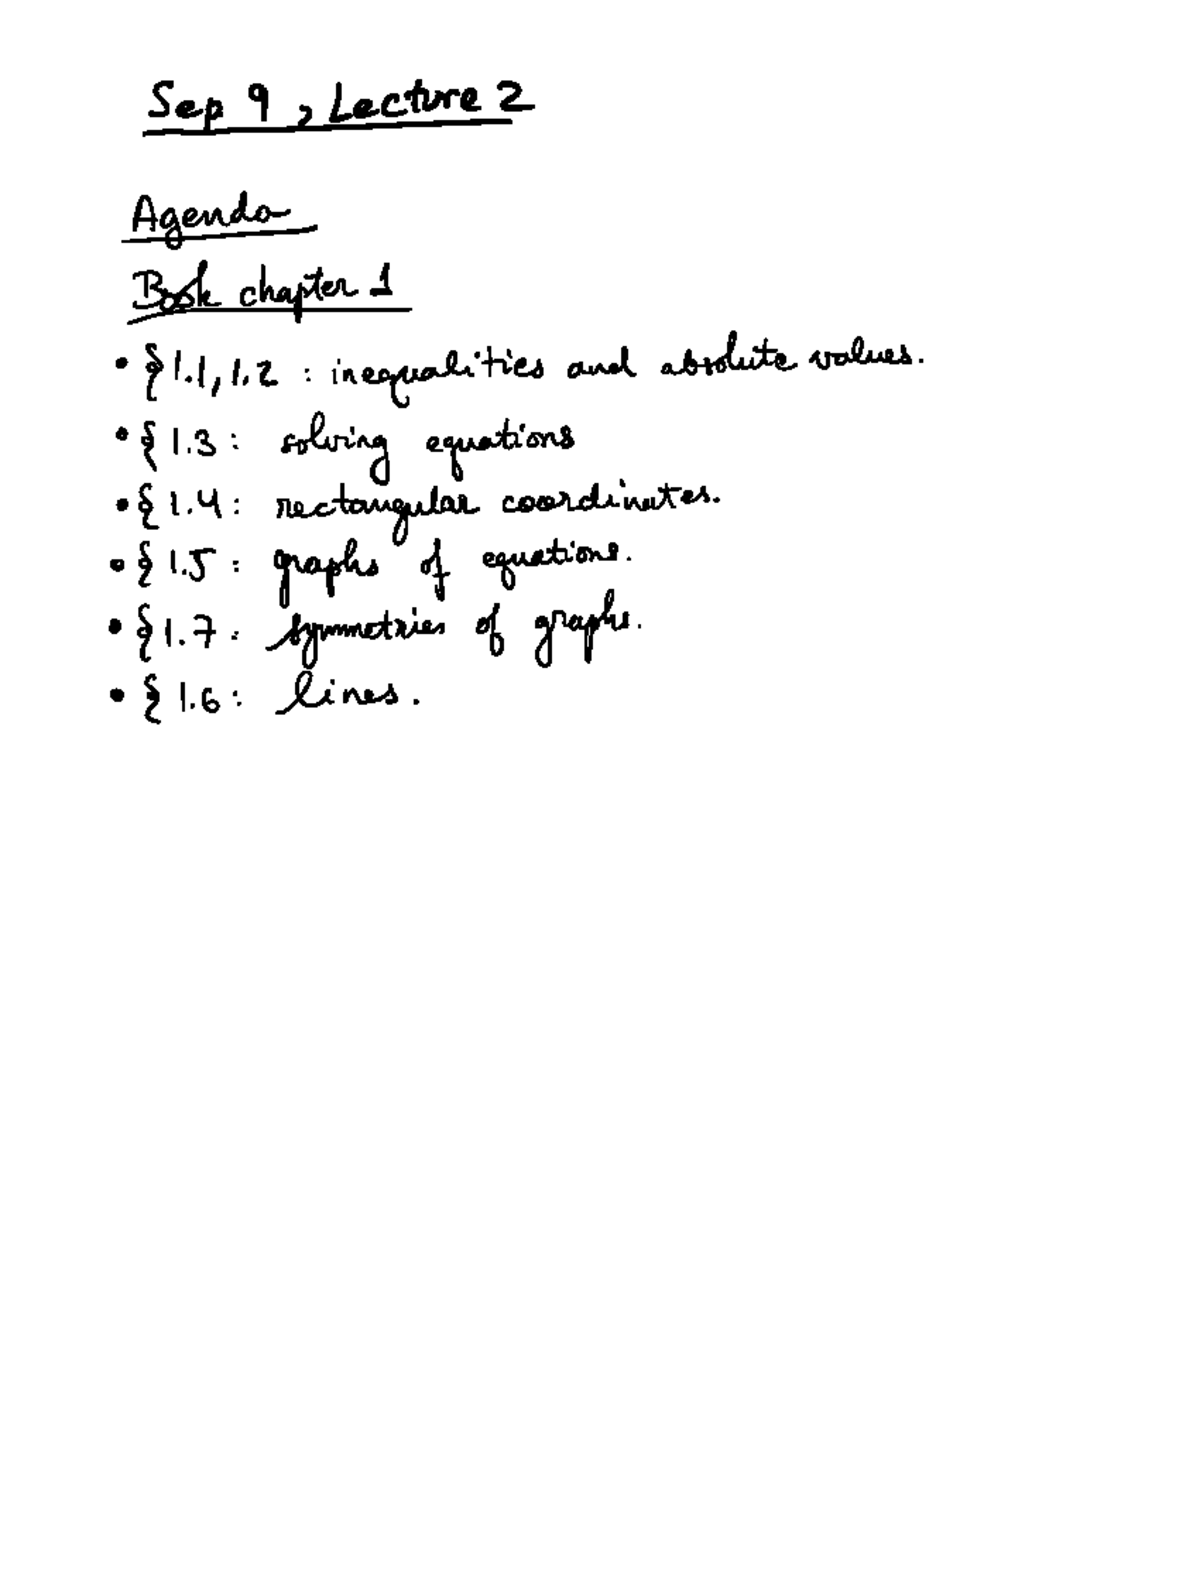 Sep 9, Lecture 2
Agenda
Book chapter 1
• § 1.1, 1.2 : inequalities and absolute values.
• § 1.3 : solving equations
• § 1.4 : rectangular coordinates.
• § 1.5 : graphs of equations.
• § 1.7 : symmetries of graphs.
• § 1.6 : lines.